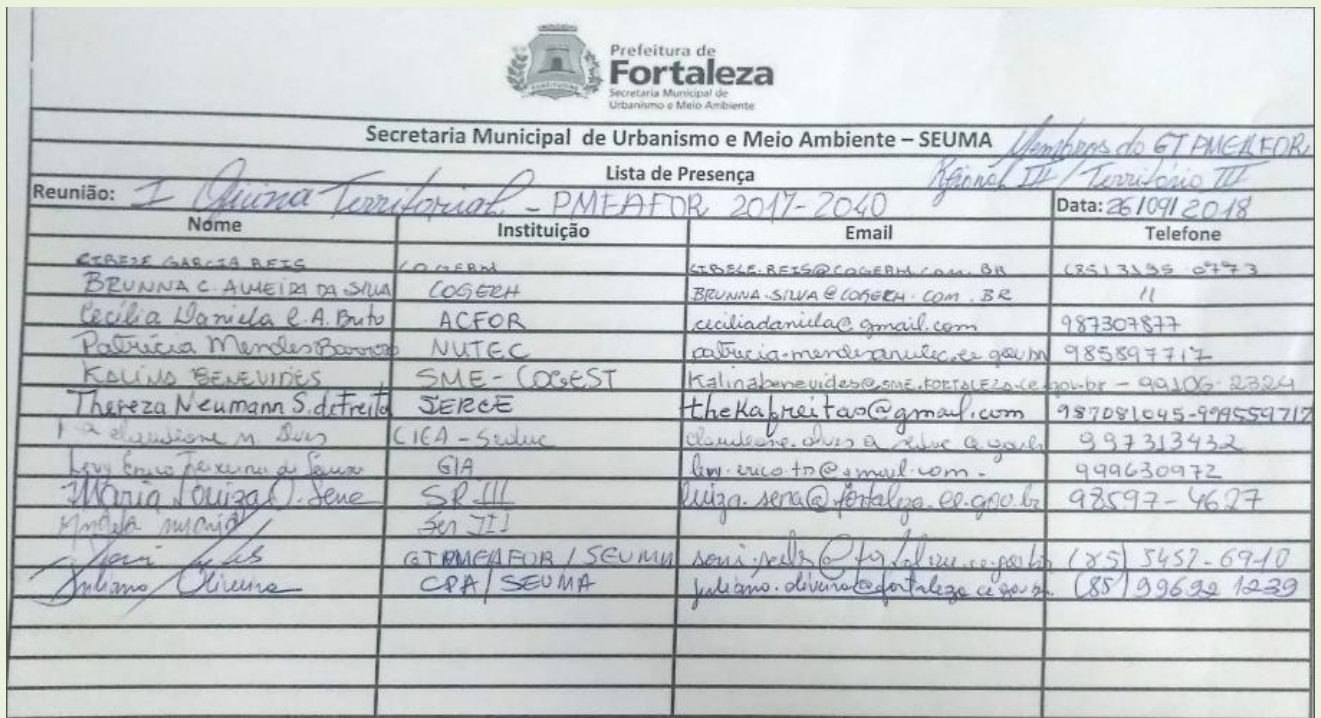 Prefeitura de
Fortaleza
Secretaria Municipal de
Urbanismo e Meio Ambiente
Secretaria Municipal de Urbanismo e Meio Ambiente – SEUMA Membros do GT PMEAFOR
Lista de Presença Regional III / Território III
Reunião: I Oficina Territorial - PMEAFOR 2017-2040 Data: 26/09/2018
Nome Instituição Email Telefone
CIBELE GARCIA REIS COGERH CIBELE.REIS@COGERH.COM.BR (85) 3195 0773
BRUNNA C. ALMEIDA DA SILVA COGERH BRUNNA.SILVA@COGERH.COM.BR 11
Cecília Daniela C. A. Brito ACFOR ceciliadaniela@gmail.com 987307877
Patrícia Mendes Barroso NUTEC 985897717
KALINA BENEVIDES SME-COGEST Kalinabenevides@SME.FORTALEZA.ce.gov.br - 99106-2324
Thereza Neumann S. de Freitas SERCE thekafreitas@gmail.com 987081045-999559717
CIEA-Seduc 997313432
Levy Enrico Teixeira de GIA 999630972
Maria Louiza O. Sena SR III luiza.sena@fortaleza.ce.gov.br 98597-4627
Ser III
GTPMEAFOR / SEUMA (85) 3452-6910
Juliano Oliveira CPA / SEUMA juliano.oliveira@fortaleza.ce.gov.br (85) 99692 1239